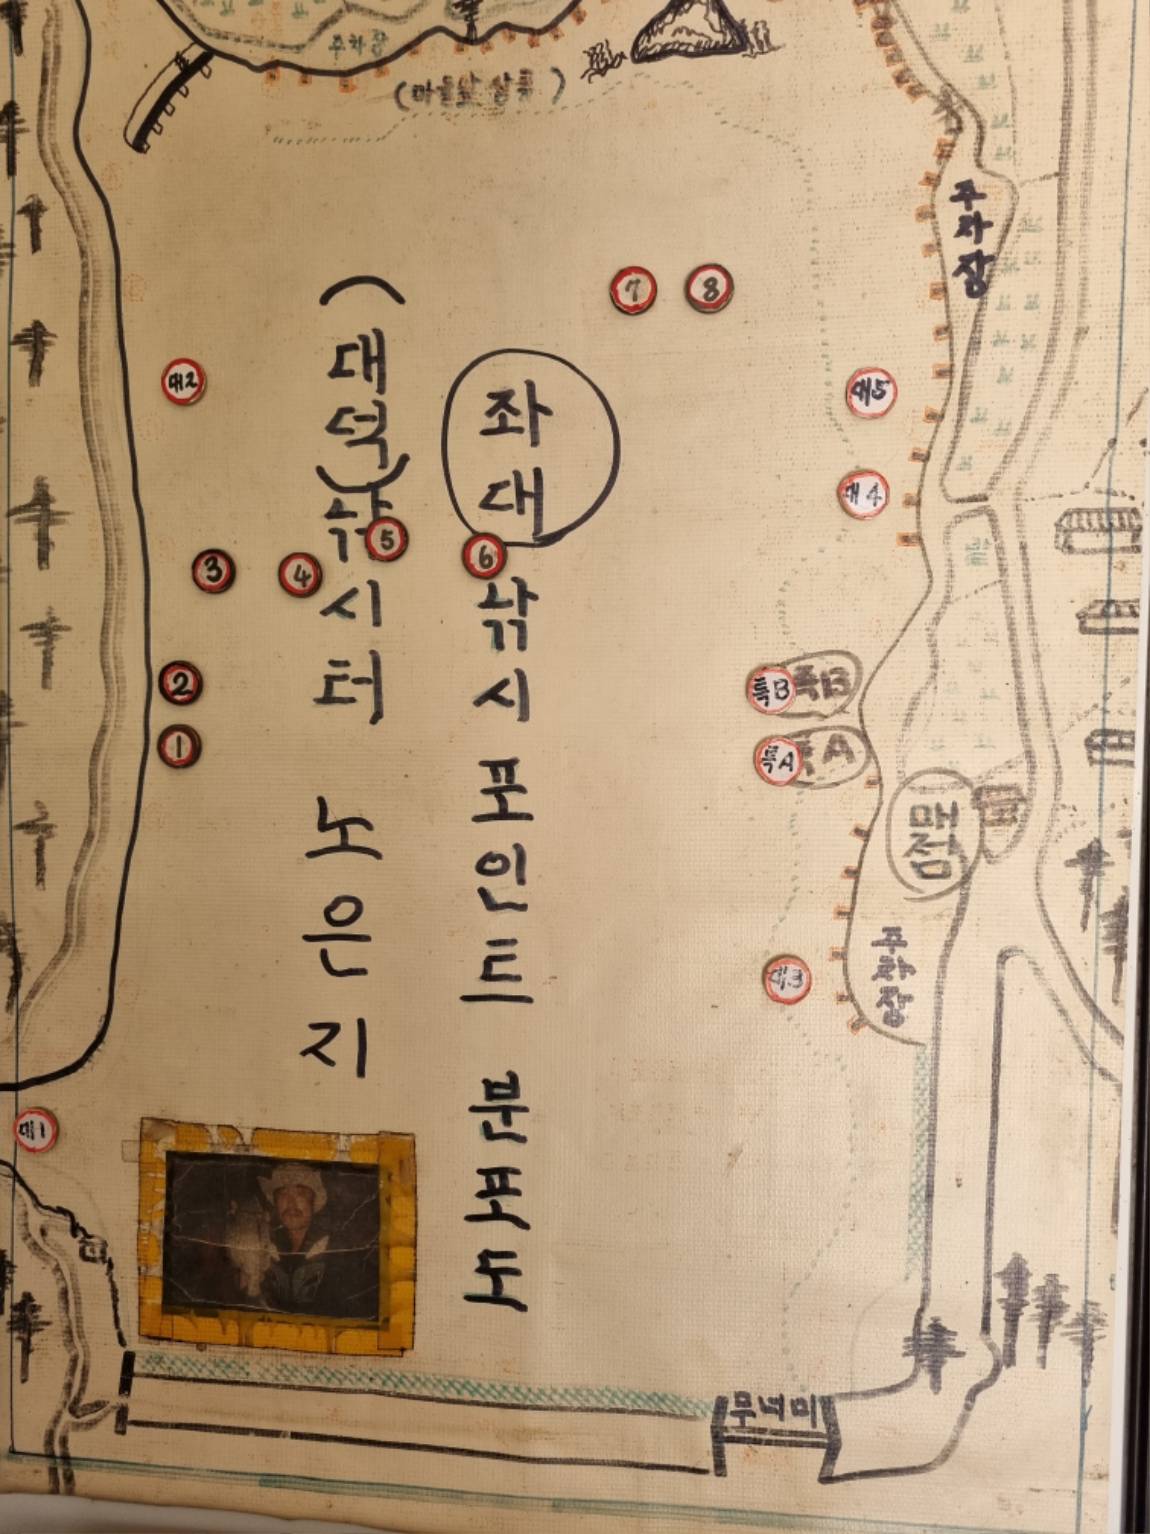 주차장
(마을앞 상류)
주차장
7
8
대2
대5
대4
(대덕)낚시터 노은지
좌대 낚시 포인트 분포도
3
4
5
6
2
1
특B
특B
특A
특A
매점
주차장
대3
대1
무넘미